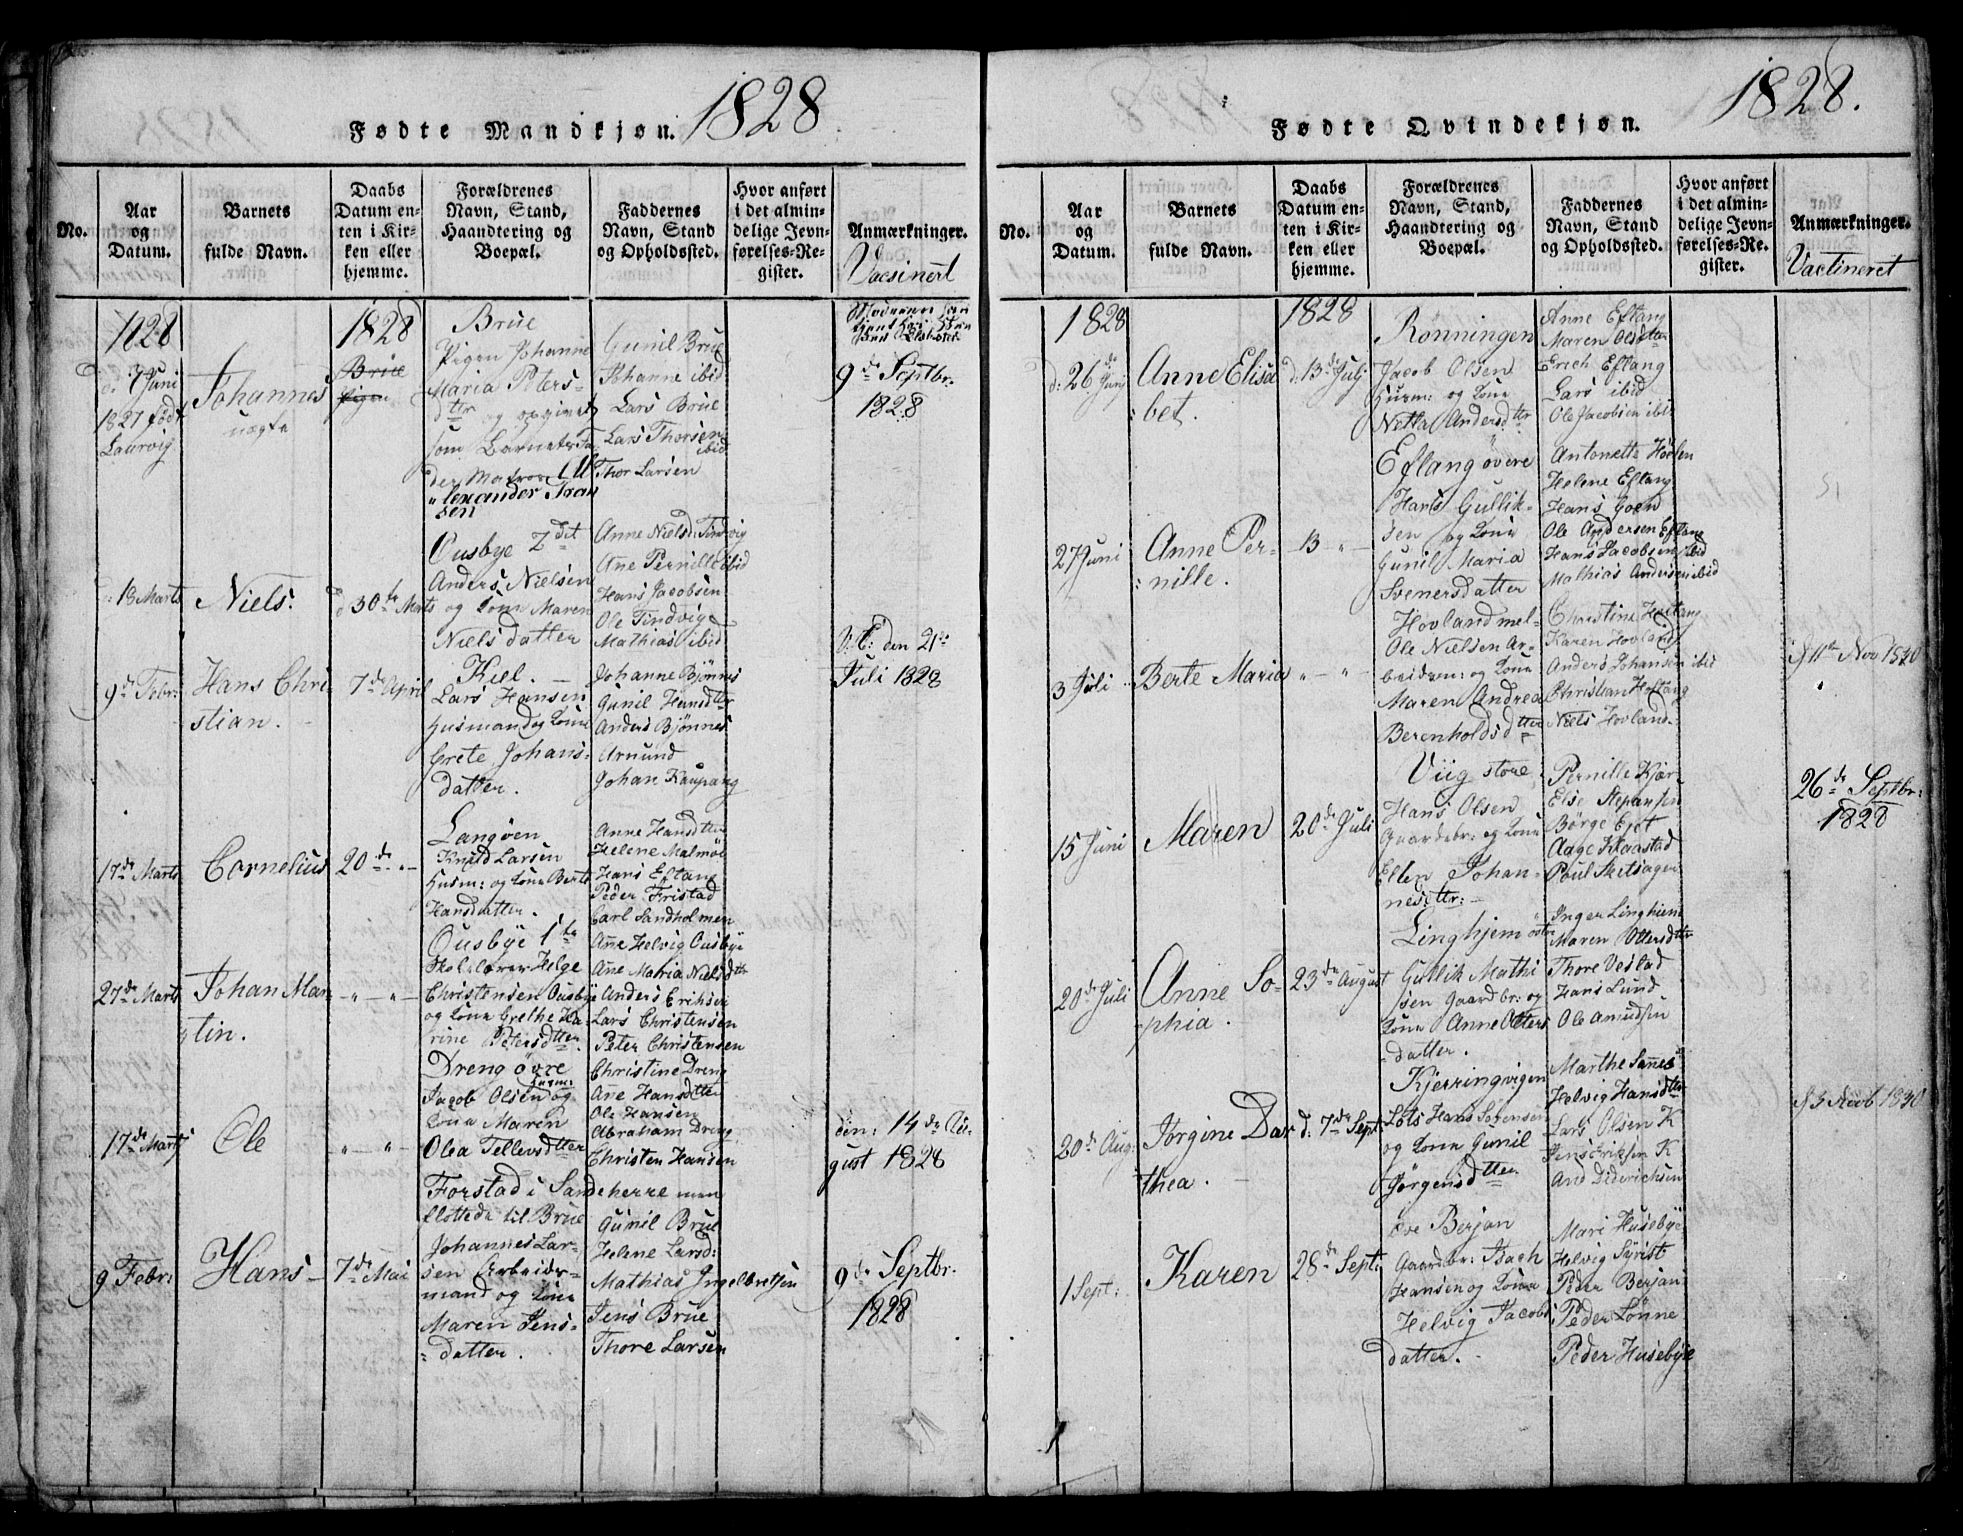 Fødte Mandkjøn. 1828
No.
Aar
og
Datum.
Barnets
fulde Navn.
Daabs
Datum en-
ten i Kir-
ken eller
hjemme.
Forældrenes
Navn, Stand,
Haandtering og
Boepæl.
Faddernes
Navn, Stand
og Opholdssted.
Hvor anført
i det almin-
delige Jevn-
førelses-Re-
gister.
Anmærkninger.
Vacsinert
1828
d. 7 Juni
1827 født
Laurvig
Johannes
uægte
1828
Brue
Pigen
Brue
Pigen Johanne
Maria Peters-
dtr og opgivet
som Barnets Fa-
der Matros Al
exander Tran
sen
Gunil Brue
Johanne ibid
Lars Brue
Lars Thorsen
ibid
Thor Larsen
9de Septbr.
1828
13 Marts
Niels.
d 30te Marts
Ousbye 2det
Anders Nielsen
og Kone Maren
Nielsdatter
Anne Nielsd: Tindvig
Ane Pernille ibid
Hans Jacobsen
Ole Tindvig
Mathias ibid
9de Febr:
Hans Chri-
stian.
7de April
Kiel.
Lars Hansen
Husmand og Kone
Grete Johans-
datter.
Johanne Bjønnes
Gunil Hansdtr
Anders Bjønnes
Amund
Johan Kaupang
V.C: den 21de
Juli 1828
17de Marts
Cornelius
20de
Langøen
Knud Larsen
Husm: og Kone Berte
Hansdatter.
Anne Hansdtter
Helene Malmøe
Hans Eftang
Peder Fristad
Carl Sandholmen
27de Marts
Johan Mar-
tin.
Ousbye 1te
Skolelærer Helge
Christensen Ousbye
og Kone Grethe Ka-
rine Petersdtter
Ane Helvig Ousbye
Ane Maria Nielsdtr
Anders Erichsen
Lars Christensen
Peter Christensen
17de Marts
Ole
Dreng øvre
Husm:
Jacob Olsen og
Kone Maren
Olea Tellevsdtter
Christine Dreng
Ane Hansdtter
Ole Hansen
Abraham Dreng
Christen Hansen
den: 14de Au-
gust 1828
9 Febr:
Hans
7de Mai
Forstad i Sandeherre men
flottede til Brue
Johannes Lar-
sen Arbeids-
mand og Kone
Maren Jens-
datter.
Gunil Brue
Helene Larsd:
Mathias Ingelbretsen
Jens Brue
Thore Larsen
9de Septbr.
1828
Fødte Qvindekjøn. 1828.
No.
Aar
og
Datum.
Barnets
fulde Navn.
Daabs
Datum en-
ten i Kir-
ken eller
hjemme.
Forældrenes
Navn, Stand,
Haandtering og
Boepæl.
Faddernes
Navn, Stand
og Opholdssted.
Hvor anført
i det almin-
delige Jevn-
førelses-Re-
gister.
Anmærkninger.
Vactineret
1828
d: 26de Junj
Anne Elisa
bet.
1828
d: 13de Julj
Rønningen
Jacob Olsen
Husm: og Kone
Netta Andersdtr
Anne Eftang
Maren Olsdtter
Erich Eftang
Lars ibid
Ole Jacobsen ibid
27 Juni
Anne Per-
nille.
13
Eftang øvere
Hans Gullik-
sen og Kone
Gunil Maria
Svenersdatter
Antonette Hovlen
Helene Eftang
Hans Goen
Ole Andersen Eftang
Hans Jacobsen ibid
Mathias Andersen ibid
3 Juli
Berte Maria
Hovland mel-
Ole Nielsen Ar-
beidsm: og Kone
Maren Andrea
Berenholdsdtter
Christine Hoftang
Karen Hovland
Anders Johansen ibid
Christian Hoftang
Niels Hovland
11te Nov 1830
15 Juni
Maren
20de Juli
Viig store
Hans Olsen
Gaardsbr: og Kone
Ellen Johan-
nesdtr:
Pernille Kjør
Else Stepansen
Børge Ejet
Aage Skaastad
Poul Skitsager
26de Septbr:
1828
20de Juli
Anne So-
phia.
23de August
Linghjem østre
Gullik Mathi
sen Gaardbr: og
Kone Anne Otters
datter.
Inger Linghiem
Maren Ottersdtr
Thore Vestad
Hans Lund
Ole Amudsen
20de Aug:
Jørgine Dar
thea.
d: 7de Sept:
Kjerringvigen
Lots Hans Sørensen
og Kone Gunil
Jørgensdtter
Marthe Sanes
Helvig Hansdtr
Lars Olsen K
Jens Eriksen K
And Diderichsen
1830
1 Sept:
Karen
28de Sept:
Eve Berjan
Gaardbr: Bach
Hansen og Kone
Helvig Jacobs
datter.
Mari Husebye
Helvig Syrist
Peder Berjan
Peder Lønne
Peder Husebye